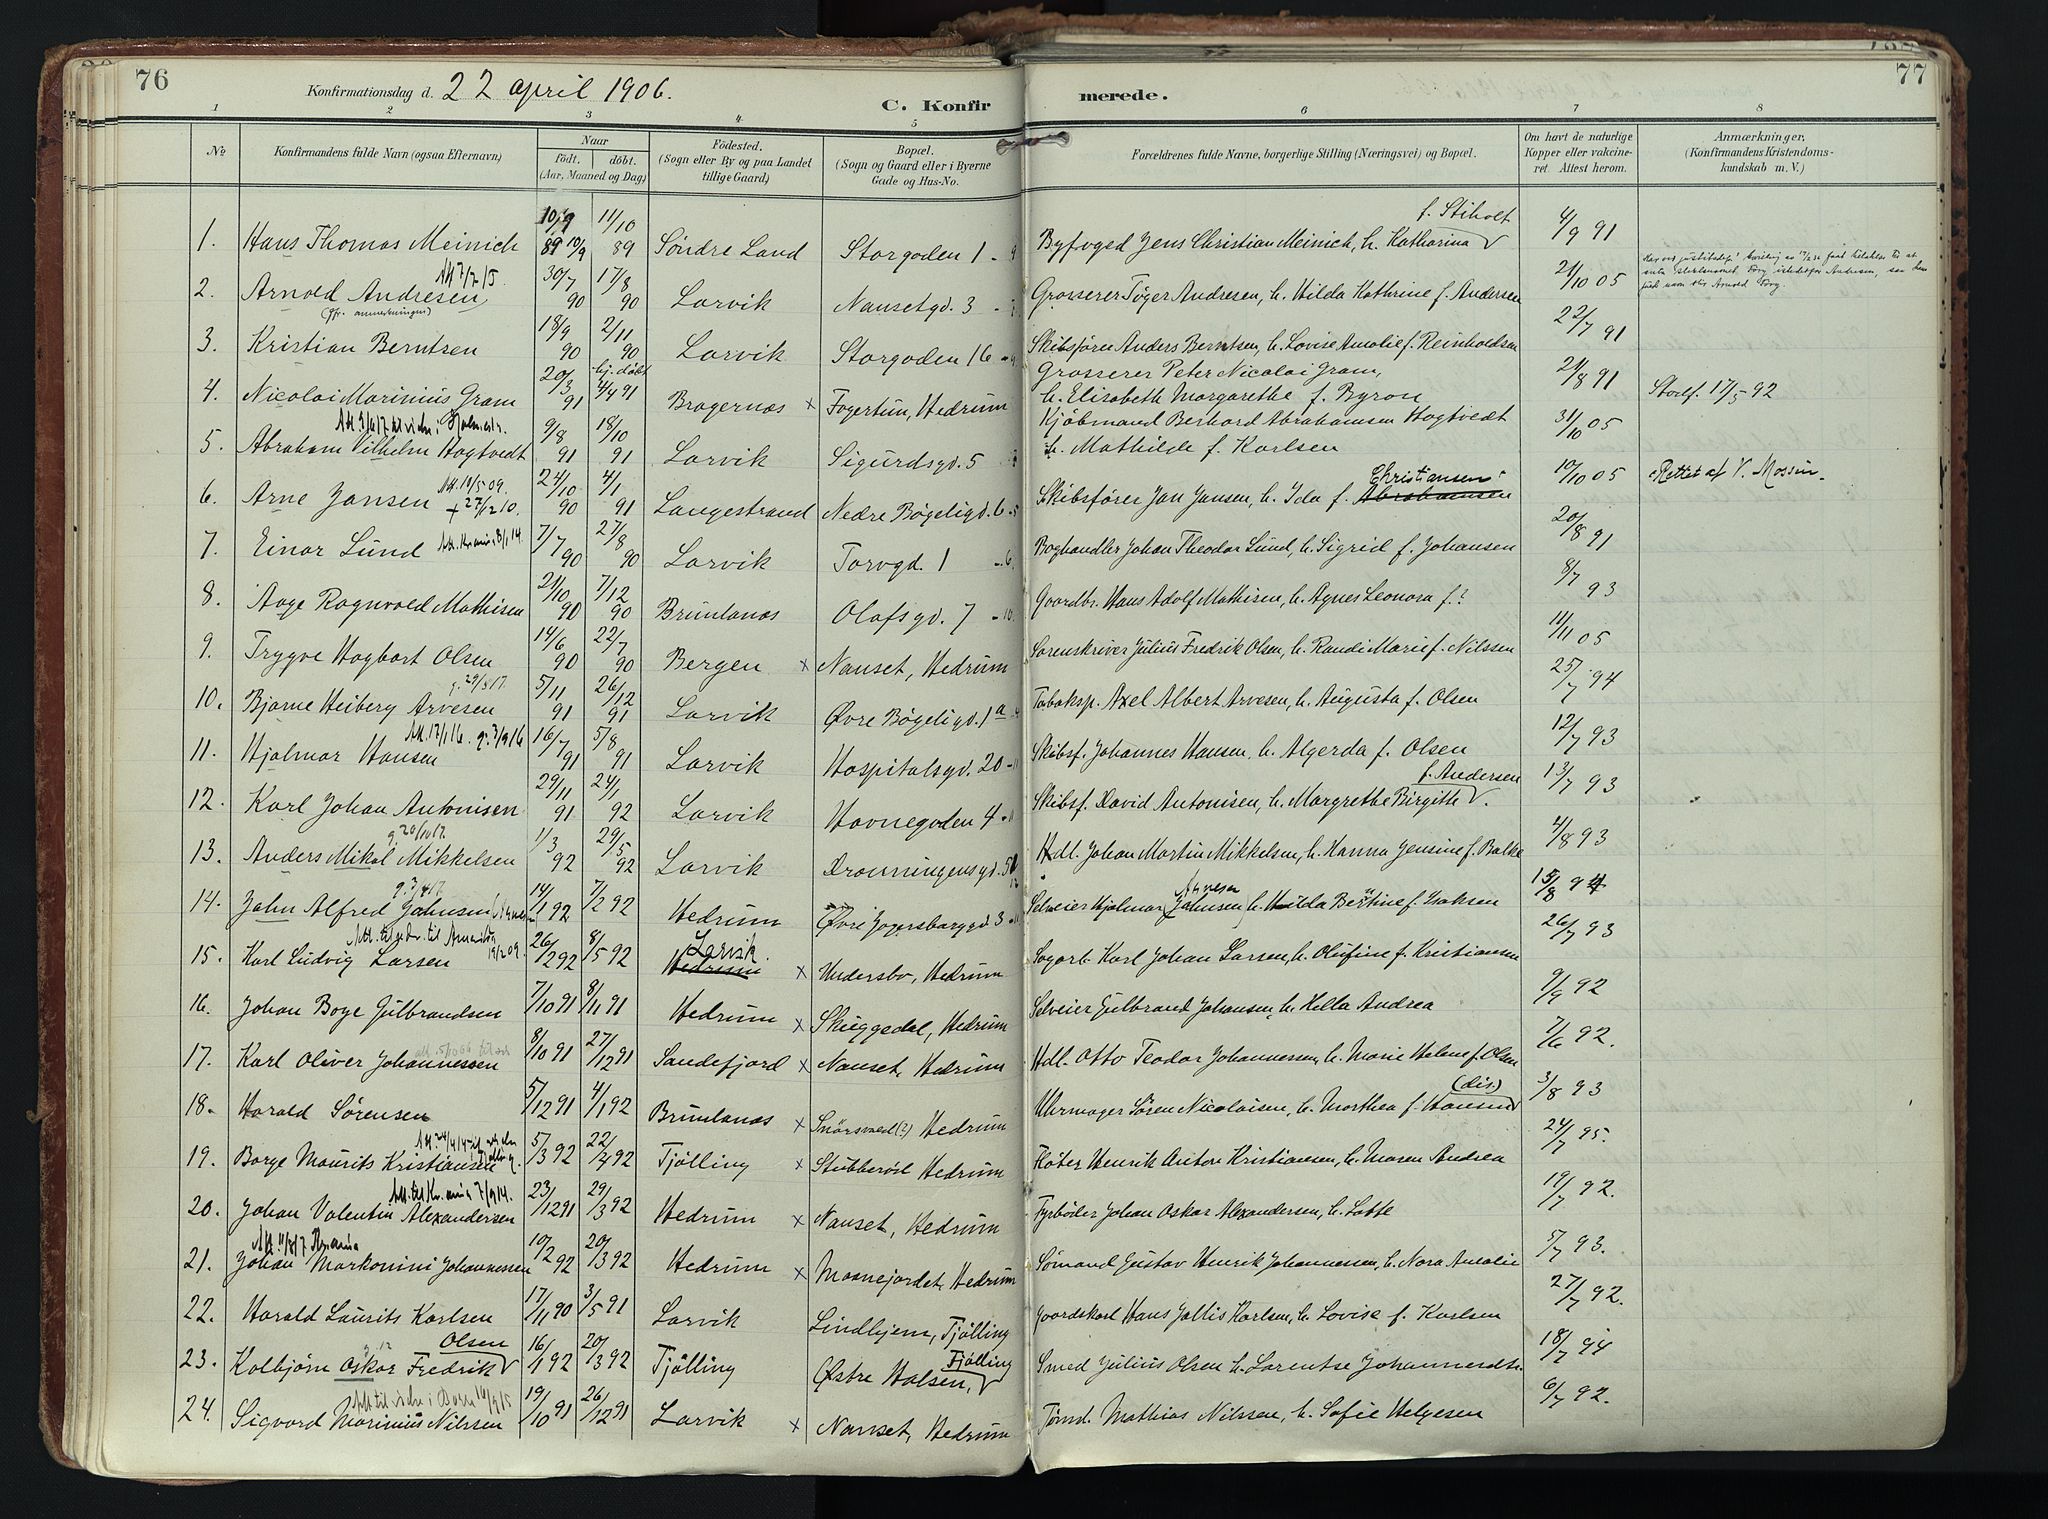 76
Konfirmationsdag d. 22 april 1906.
C. Konfir
merede.
77
1 2 3 4 5 6 7 8
No
Konfirmandens fulde Navn (ogsaa Efternavn)
Naar
født. døbt.
(Aar, Maaned og Dag)
Fødested.
(Sogn eller By og paa Landet
tillige Gaard)
Bopæl.
(Sogn og Gaard eller i Byerne
Gade og Hus-No.
Forældrenes fulde Navne, borgerlige Stilling (Næringsvei) og Bopæl.
Om havt de naturlige
Kopper eller vakcine-
ret. Attest herom.
Anmærkninger,
(Konfirmandens Kristendoms-
kundskab m. V.)
f. Stiholt
1. Hans Thomas Meinich 10/9 89 11/10 89 Søndre Land Storgaden 1 Byfoged Jens Christian Meinich, h. Katharina 4/9 91
Att 7/7 15.
2. Arnold Andresen 30/7 90 17/8 90 Larvik Nansetgd. 3 Grosserer Tøger Andresen, h. Hilda Kathrine f. Andersen 21/10 05
(jfr. anmerkningen)
3. Kristian Berntsen 18/9 90 2/11 90 Larvik Storgaden 16 Skibsfører Anders Berntsen, h. Lovise Amalie f. Reinholdsen 22/7 91
hj. døbt
Grosserer Peter Nicolai Gram,
4. Nicolai Marinius Gram 20/3 91 4/4 91 Bragernæs × Fagertun, Hedrum h. Elisabeth Margarethe f. Byron 21/8 91 Stadf. 17/5 92
Kjøbmand Berhard Abrahamsen Hogtvedt
5. Abraham Vilhelm Hogtvedt 9/8 91 18/10 91 Larvik Sigurdsgd. 5 h. Mathilde f. Karlsen 31/10 05
Att. 14/5 09. Christiansen
6. Arne Jansen + 27/12 10. 24/10 90 4/1 91 Langestrand Nedre Bøgeligd. 6 Skibsfører Jan Jansen, h. Ida f. Abrahamsen 10/10 05 Rettet af V. Mossin
7. Einar Lund 7/7 90 27/8 90 Larvik Torvgd. 1 Boghandler Johan Theodor Lund, h. Sigrid f. Johansen 20/8 91
8. Aage Ragnvald Mathisen 21/10 90 7/12 90 Brunlanæs Olafsgd. 7 - 10 Gaardbr. Hans Adolf Mathisen, h. Agnes Leonora f.? 8/7 93
9. Trygve Hagbart Olsen 14/6 90 22/7 90 Bergen × Nanset, Hedrum Sorenskriver Julius Fredrik Olsen, h. Randi Marie f. Nilssen 11/11 05
g. 29/8 17.
10. Bjarne Heiberg Arvesen 5/11 91 26/12 91 Larvik Øvre Bøgeligd. 1a Tobaksp. Axel Albert Arvesen, h. Augusta f. Olsen 25/7 94
Att. 12/1 16. g. 3/9 16
11. Hjalmar Hansen 16/7 91 5/8 91 Larvik Hospitalsgd. 20 Skibsf. Johannes Hansen, h. Algerda f. Olsen 12/7 93
f. Andersen
12. Karl Johan Antonisen 29/11 91 24/1 92 Larvik Havnegaden 4 Skibsf. David Antonisen, h. Margrethe Birgitte. 13/7 93
g. 20/10 17.
13. Anders Mikal Mikkelsen 1/3 92 29/5 92 Larvik Dronningensgd. Hdl. Johan Martin Mikkelsen, h. Hanna Jensine f. Balke 4/8 93
g. 3/4 17.
14. John Alfred Johnsen 14/1 92 7/2 92 Hedrum Øvre Jegersborggd 3 Selveier Hjalmar Johnsen h. Hilda Bertine f. Isaksen 15/8 94
Att. Larvik.
15. Karl Ludvig Larsen 26/2 92 8/5 92 Hedrum × Undersbo, Hedrum Sagarb. Karl Johan Larsen, h. Olufine f. Kristiansen 26/7 93
16. Johan Boye Gulbrandsen 7/10 91 8/11 91 Hedrum × Skuggedal, Hedrum Selveier Gulbrand Johansen, h. Hella Andrea 9/9 92
17. Karl Oliver Johannessen 8/10 91 27/12 91 Sandefjord × Nanset, Hedrum Hdl. Otto Teodor Johannessen, h. Marie Helene f. Olsen 7/6 92.
(dis.)
18. Harald Sørensen 5/12 91 4/1 92 Brunlanæs × Snørsmed(?) Hedrum Uhrmager Søren Nicolaisen, h. Marthea f. Hansen 3/8 93
19. Borge Maurits Kristiansen 5/3 92 22/4 92 Tjølling × Stubberød Hedrum Fløter Henrik Anton Kristiansen, h. Maren Andrea 24/7 95.
Att. til Kr.ania 7/9 14.
20. Johan Valentin Alexandersen 23/12 91 29/3 92 Hedrum × Nanset, Hedrum Fyrbøder Johan Oskar Alexandersen, h. Lotte 19/7 92.
21. Johan Markonini Johannessen 10/2 92 20/3 92 Hedrum × Moanejordet, Hedrum Sømand Gustav Henrik Johannessen, h. Nora Amalie 5/7 93.
22. Harald Laurits Karlsen 17/11 90 3/5 91 Larvik Lindhjem, Tjølling Gaardskarl Hans Jallis Karlsen, h. Lovise f. Karlsen 27/7 92.
Olsen Tjølling
23. Kolbjørn Oskar Fredrik 16/1 92 20/3 92 Tjølling Østre Halsen, Smed Julius Olsen h. Larentse Johannesdtr. 18/7 94
24. Sigvard Marinius Nilssen 19/10 91 26/12 91 Larvik × Nanset, Hedrum Tømd. Mathias Nilssen, h. Sofie Helgesen 6/7 92.